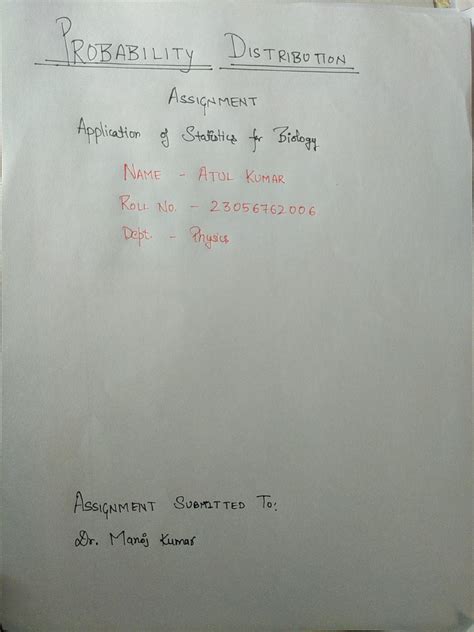 PROBABILITY DISTRIBUTION
ASSIGNMENT
Application of Statistics for Biology
NAME - ATUL KUMAR
ROLL NO. - 23056762006
Dept. - Physics
ASSIGNMENT SUBMITTED TO:
Dr. Manoj Kumar